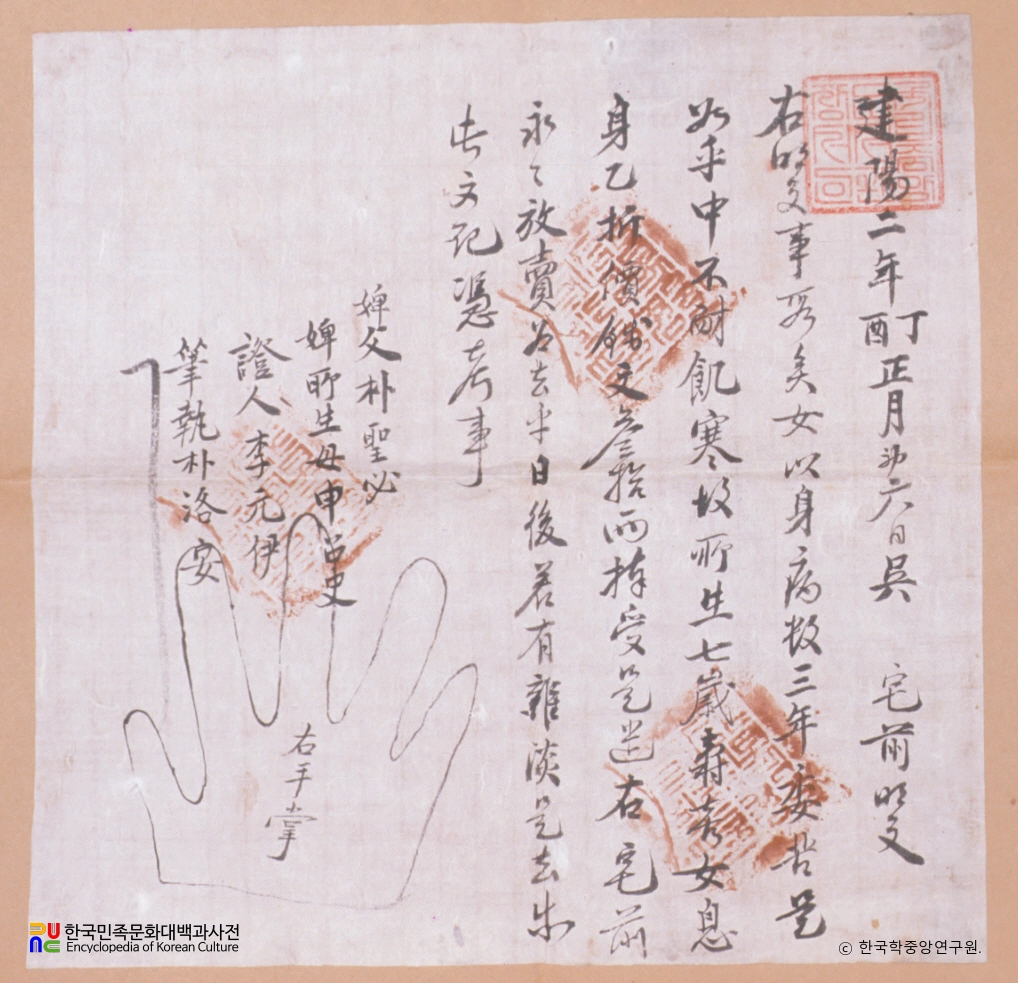 建陽二年丁酉正月初六日吳 宅前明文
右明文事段矣女以身病數三年委苦是
如乎中不耐飢寒故所生七歲壽 女息
身乙折價錢文叁拾兩捧受是遣右宅前
永永放賣爲去乎日後若有雜談是去等
此文記憑考事
婢父朴聖必
婢所生母申召史
證人李元伊
筆執朴洛安
右手掌
한국민족문화대백과사전
Encyclopedia of Korean Culture
ⓒ 한국학중앙연구원.